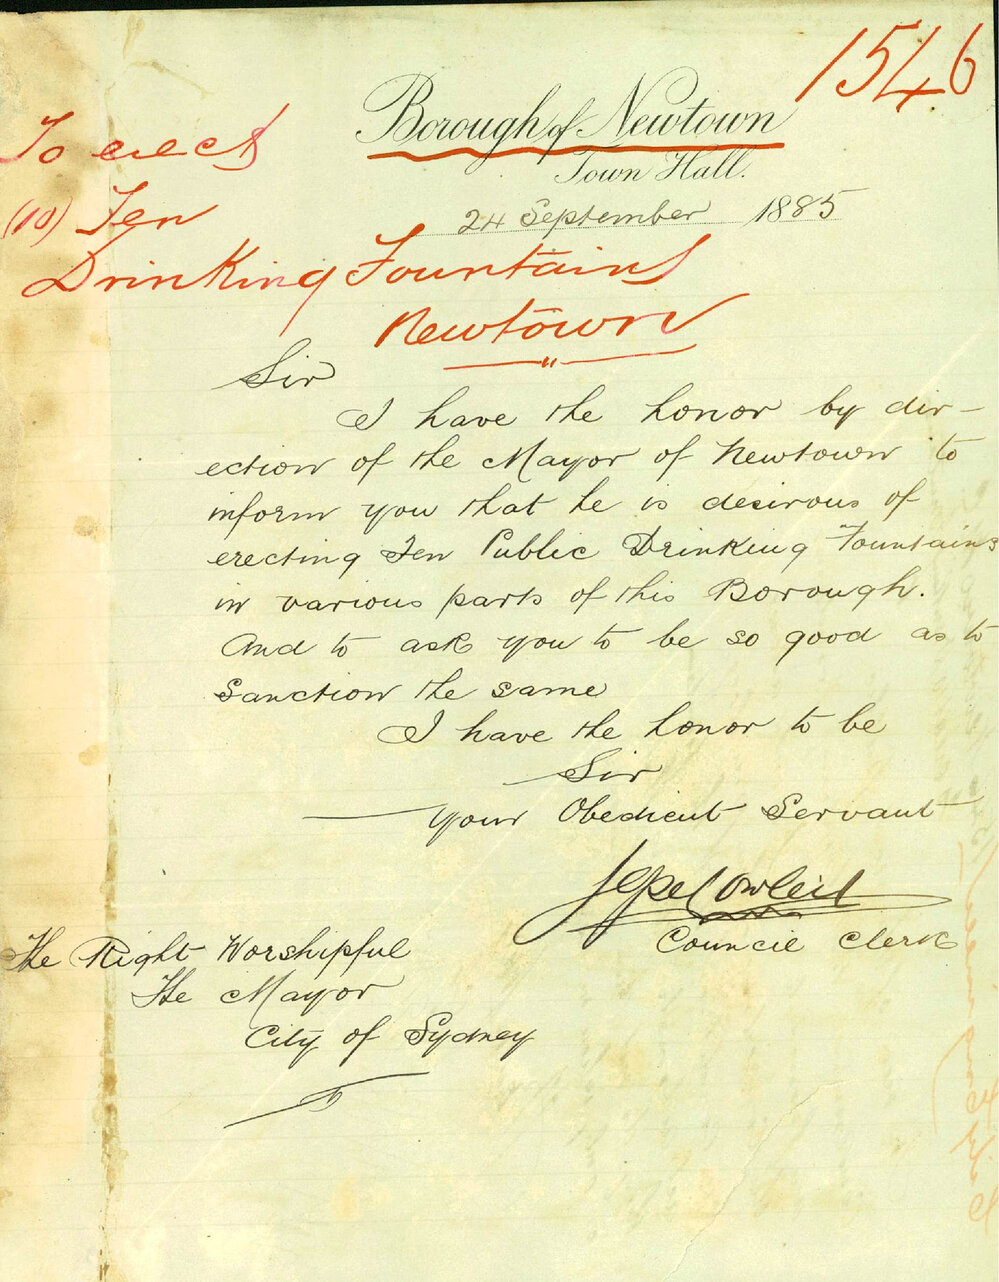 1546
Borough of Newtown
Town Hall.
To erect
(10) Ten
24 September 1885
Drinking Fountains
Newtown
Sir
I have the honor by dir-
ection of the Mayor of Newtown to
inform you that he is desirous of
erecting Ten Public Drinking Fountains
in various parts of this Borough.
And to ask you to be so good as to
Sanction the same
I have the honor to be
Sir
your Obedient Servant
Council Clerk
The Right Worshipful
The Mayor
City of Sydney